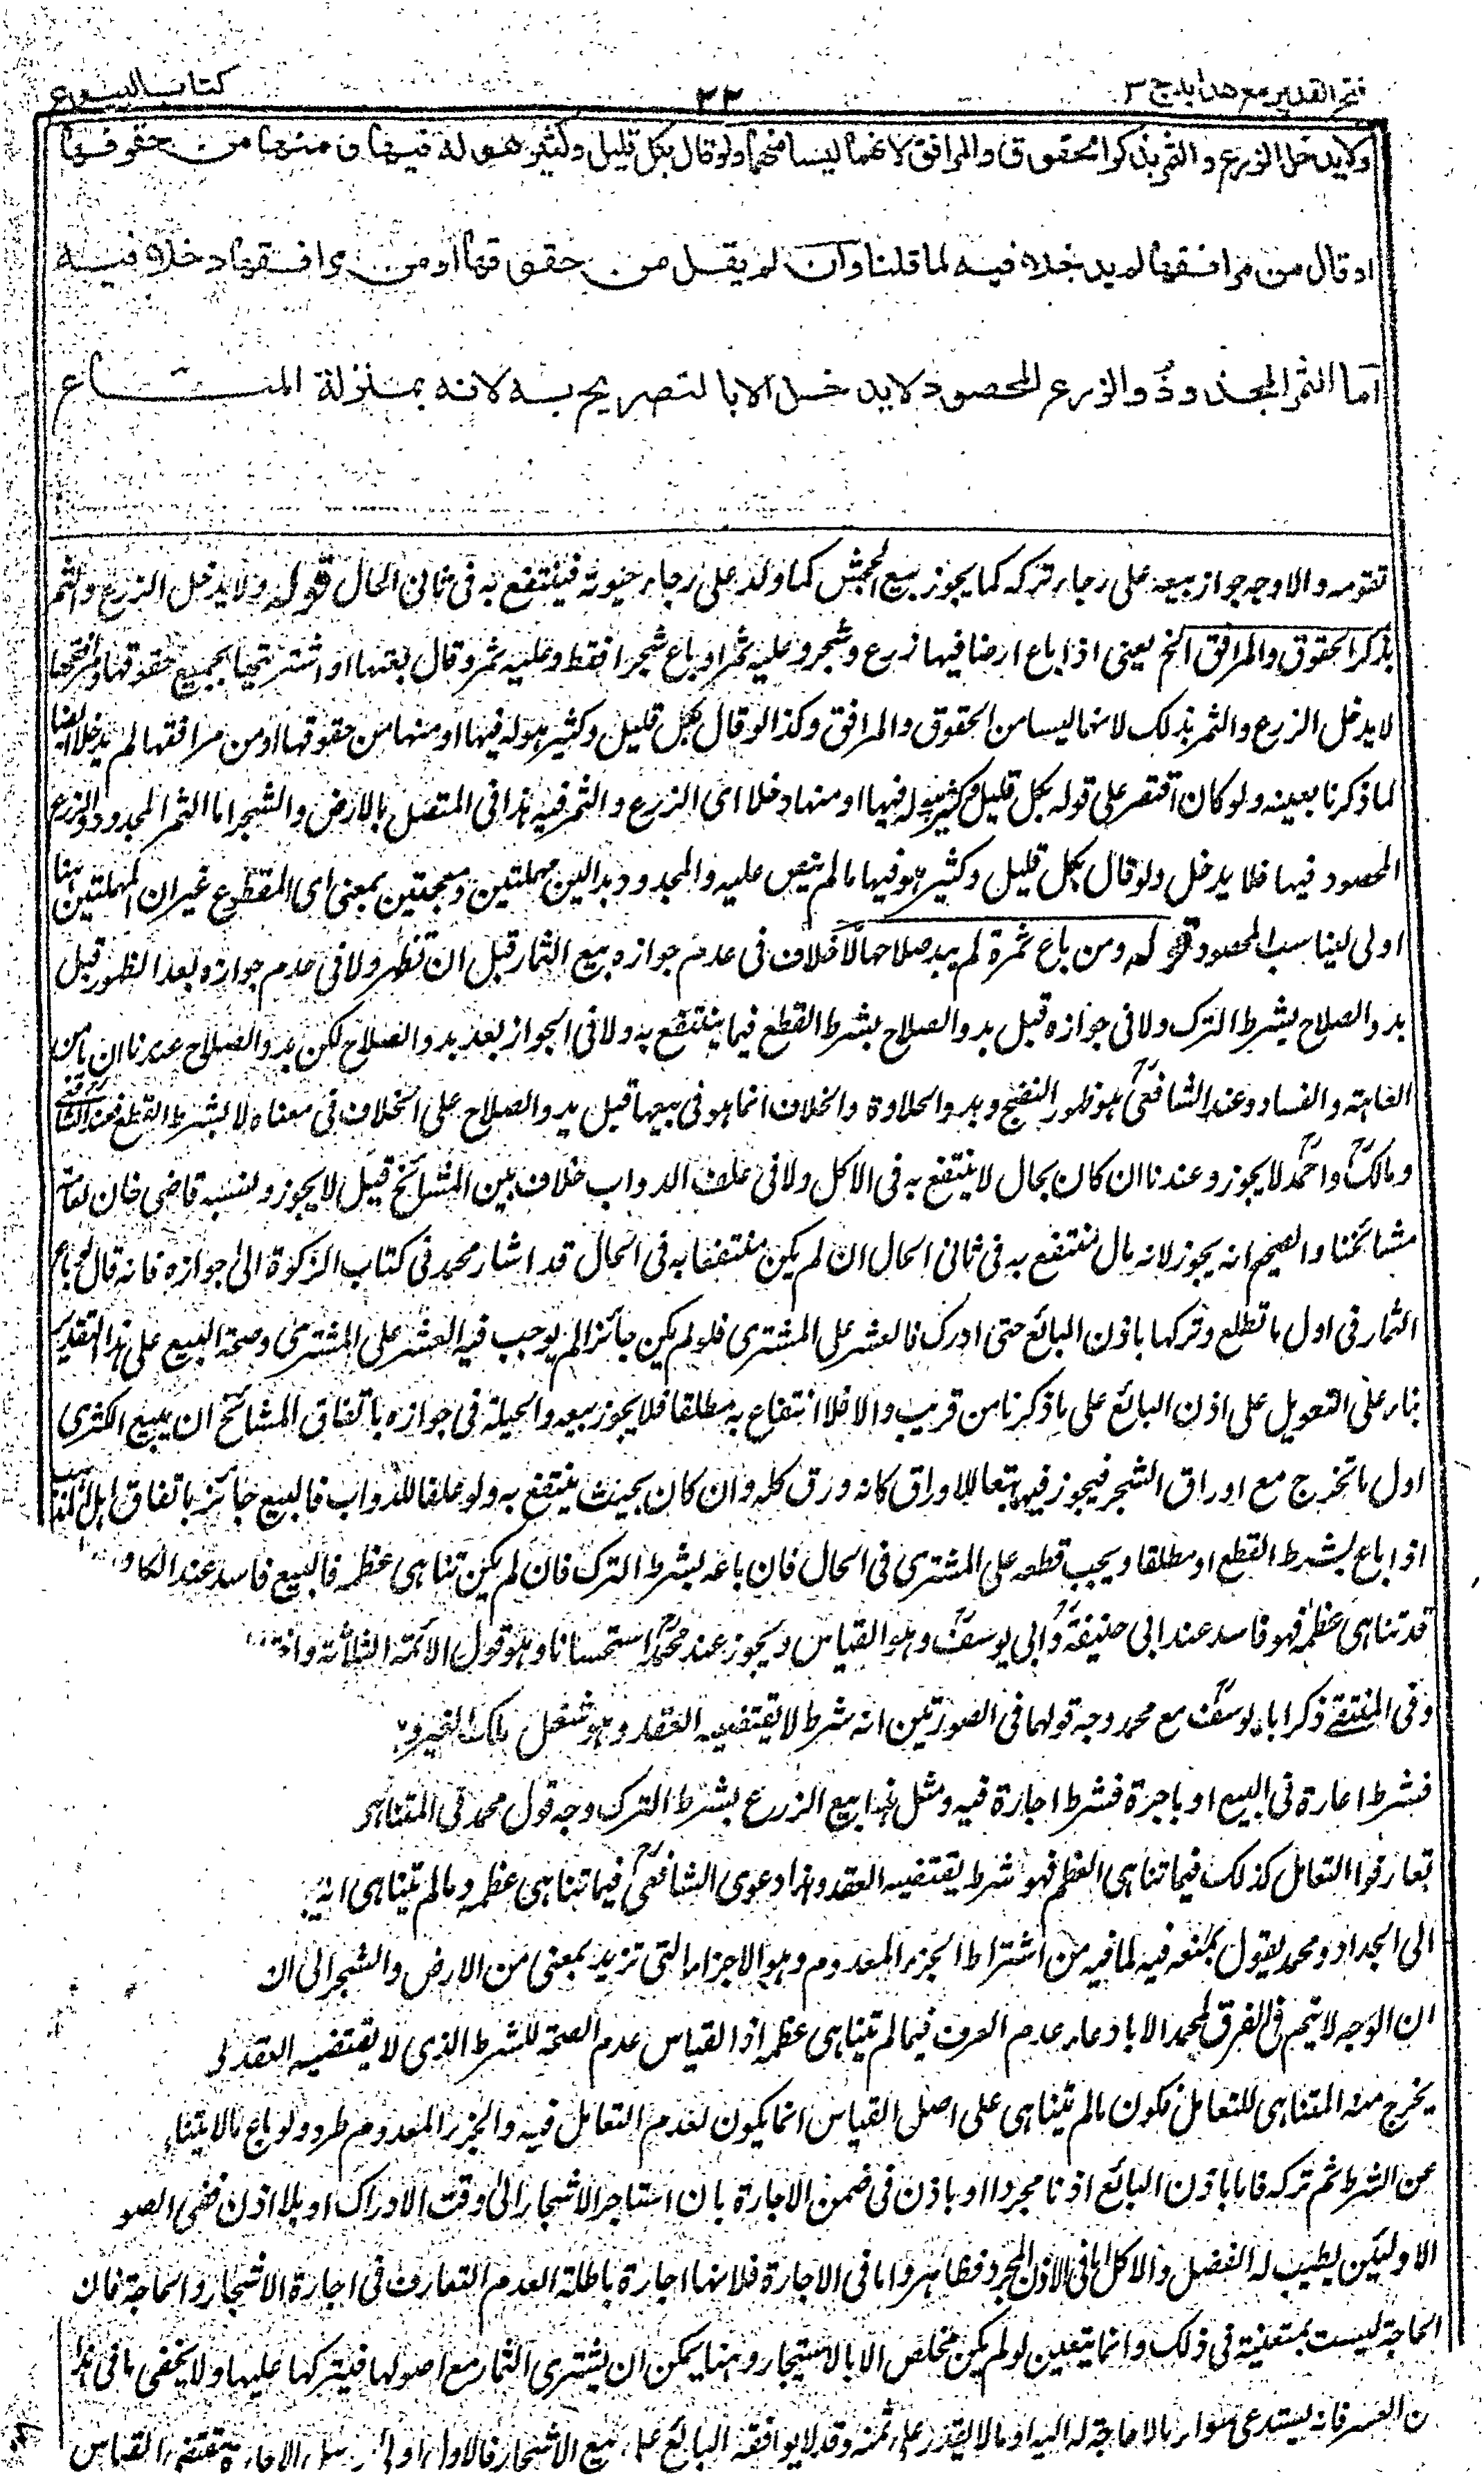 فتح القدير مع هدايه ج ٣
٣٣
كتاب البيوع
ولا يدخل الزرع والثمر بذكر الحقوق والمرافق لانهما ليسا منهما ولو قال بكل قليل وكثير هو له فيها ومنها من حقوقها
او قال من مرافقها لم يدخلا فيه لما قلنا وان لم يقل من حقوقها او من مرافقها دخلا فيه
اما الثمر المجذوذ والزرع المحصود لا يدخل الا بالتصريح به لانه بمنزلة المتاع
تقومه والاوجه جواز بيعه على رجاء تركه كما يجوز بيع الجحش كما ولد على رجاء حيوته فينتفع به فى ثانى الحال قوله ولا يدخل الزرع والثمر
بذكر الحقوق والمرافق الخ يعنى اذا باع ارضا فيها زرع وشجر وعليه ثمر او باع شجرا فقط وعليه ثمر وقال بعتها او اشتريتها بجميع حقوقها ومرافقها
لا يدخل الزرع والثمر بذلك لانهما ليسا من الحقوق والمرافق وكذا لو قال بكل قليل وكثير هو له فيها او منها من حقوقها او من مرافقها لم يدخلا ايضا
لما ذكرنا بعينه ولو كان اقتصر على قوله بكل قليل وكثير هو له فيها او منها دخلا اى الزرع والثمر فيه هذا فى المتصل بالارض والشجر اما الثمر المجدود والزرع
المحصود فيها فلا يدخل ولو قال بكل قليل وكثير هو فيها ما لم ينص عليه والمجدود بدالين مهملتين ومعجمتين بمعنى اى المقطوع غير ان المهملتين هنا
اولى ليناسب المحصود قوله ومن باع ثمرة لم يبد صلاحها لا خلاف فى عدم جوازه بيع الثمار قبل ان تظهر ولا فى عدم جوازه بعد الظهور قبل
بدو الصلاح بشرط الترك ولا فى جوازه قبل بدو الصلاح بشرط القطع فيما ينتفع به ولا فى الجواز بعد بدو الصلاح لكن بدو الصلاح عندنا ان يامن
العاهة والفساد وعند الشافعى هو ظهور النضج وبدو الحلاوة والخلاف انما هو فى بيعها قبل بدو الصلاح على الخلاف فى معناه لا بشرط القطع فعند الشافعى
ومالك واحمد لا يجوز وعندنا ان كان بحال لا ينتفع به فى الاكل ولا فى علف الدواب خلاف بين المشائخ قيل لا يجوز ونسبه قاضى خان لعامة
مشائخنا والصحيح انه يجوز لانه مال منتفع به فى ثانى الحال ان لم يكن منتفعا به فى الحال قد اشار محمد فى كتاب الزكوة الى جوازه فانه قال لو باع
الثمار فى اول ما تطلع وتركها باذن البائع حتى ادرك فالعشر على المشترى فلو لم يكن جائزا لم يوجب فيه العشر على المشترى وصحة البيع على هذا التقدير
بناء على التعويل على اذن البائع على ما ذكرنا من قريب والا فلا انتفاع به مطلقا فلا يجوز بيعه والحيلة فى جوازه باتفاق المشائخ ان يبيع الكثرى
اول ما تخرج مع اوراق الشجر فيجوز فيها تبعا للاوراق كانه ورق كله وان كان بحيث ينتفع به ولو علفا للدواب فالبيع جائز باتفاق اهل المذهب
اذا باع بشرط القطع او مطلقا ويجب قطعه على المشترى فى الحال فان باعه بشرط الترك فان لم يكن تناهى عظمه فالبيع فاسد عند الكل و
قد تناهى عظمه فهو فاسد عند ابى حنيفة وابى يوسف وهو القياس ويجوز عند محمد استحسانا وهو قول الائمة الثلثة
وفى المنتقى ذكر ابا يوسف مع محمد وجه قولهما فى الصورتين انه شرط لا يقتضيه العقد وهو شغل ملك الغير
فشرط اعارة فى البيع او باجرة فشرط اجارة فيه ومثل هذا بيع الزرع بشرط الترك وجه قول محمد فى المتناهى
تعارفوا التعامل كذلك فيما تناهى العظم فهو شرط يقتضيه العقد وهذا دعوى الشافعى فيما تناهى عظمه وما لم يتناهى
الى الجداد ومحمد يقول بمنعه فيه لما فيه من اشتراط الجزء المعدوم وهو الاجزاء التى تزيد بمعنى من الارض والشجر الى ان
ان الوجه لا يتم فى الفرق لمحمد الا بادعاء عدم العرف فيما لم يتناهى عظمه اذ القياس عدم الصحة للشرط الذى لا يقتضيه العقد
يخرج منه المتناهى للتعامل فكون ما لم يتناهى على اصل القياس انما يكون لعدم التعامل فيه والجزء المعدوم طرد ولو باع ما لا يتناه
عن الشرط ثم تركه فاما باذن البائع اذنا مجردا او باذن فى ضمن الاجارة بان استاجر الاشجار الى وقت الادراك او بلا اذن ففى الصو
الاوليين يطيب له الفضل والاكل اما فى الاذن المجرد فظاهر واما فى الاجارة فلانها اجارة باطلة لعدم التعارف فى اجارة الاشجار والحاجة فان
الحاجة ليست بمتعينة فى ذلك وانما يتعين لو لم يكن مخلص الا بالاستيجار وهنا يمكن ان يشترى الثمار مع اصولها فيتركها عليها ولا يخفى ما فى هذا
ن العسر فانه يستدعى شراء ما لا حاجة له اليه او ما لا يقدر على ثمنه وقد لا يوافقه البائع على بيع الاشجار فالاول اولى